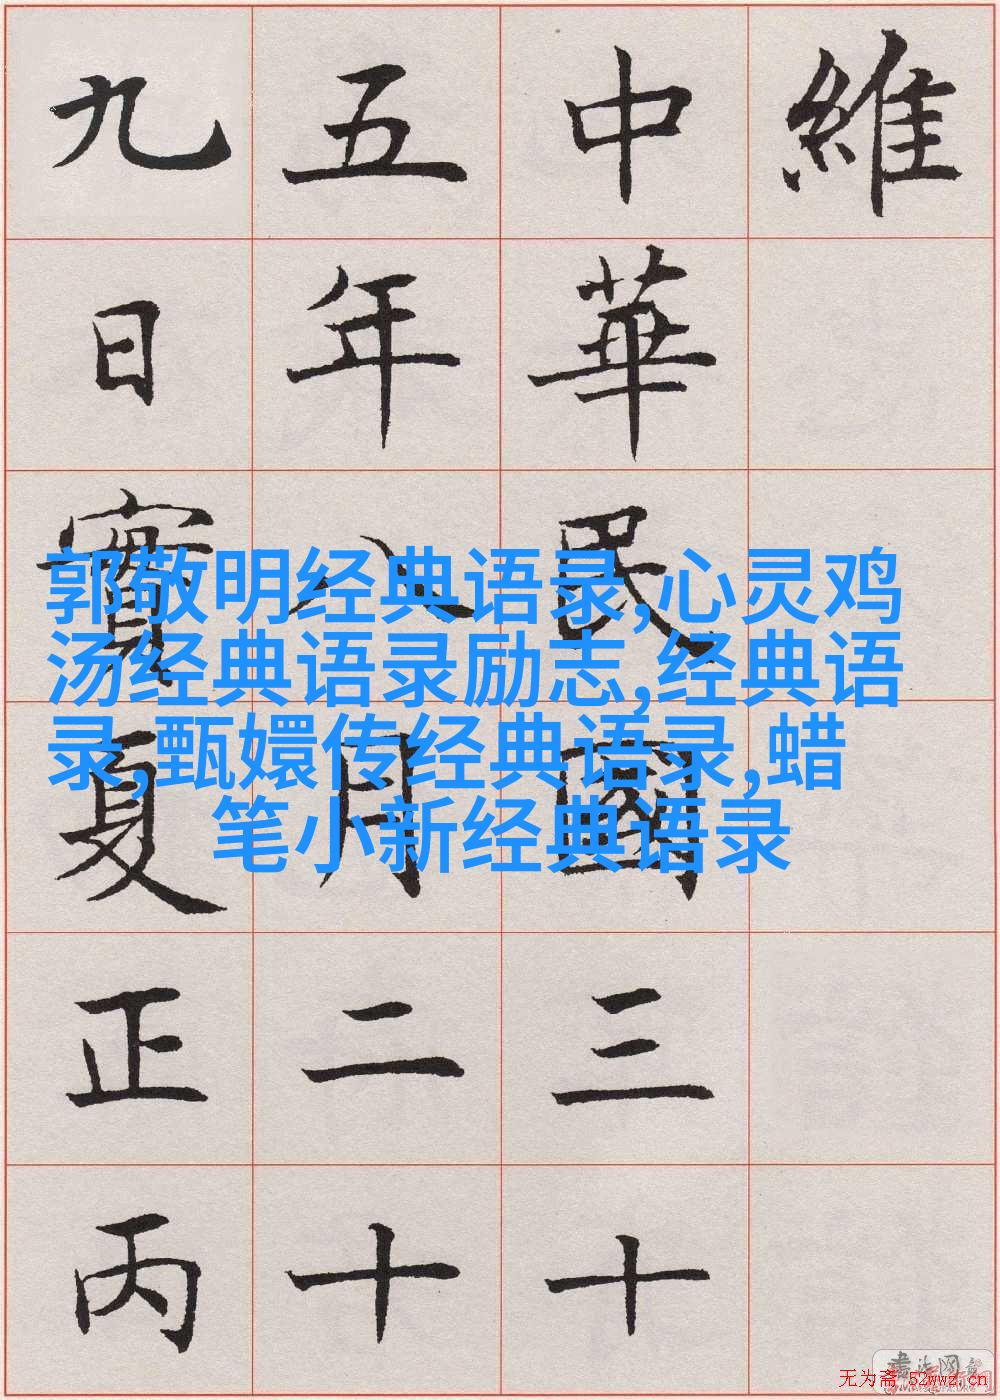 維
中華民國三十
五年八月二十
九日實夏正丙
郭敬明经典语录,心灵鸡
汤经典语录励志,经典语
录,甄嬛传经典语录,蜡
笔小新经典语录
无为斋 52wwz.cn